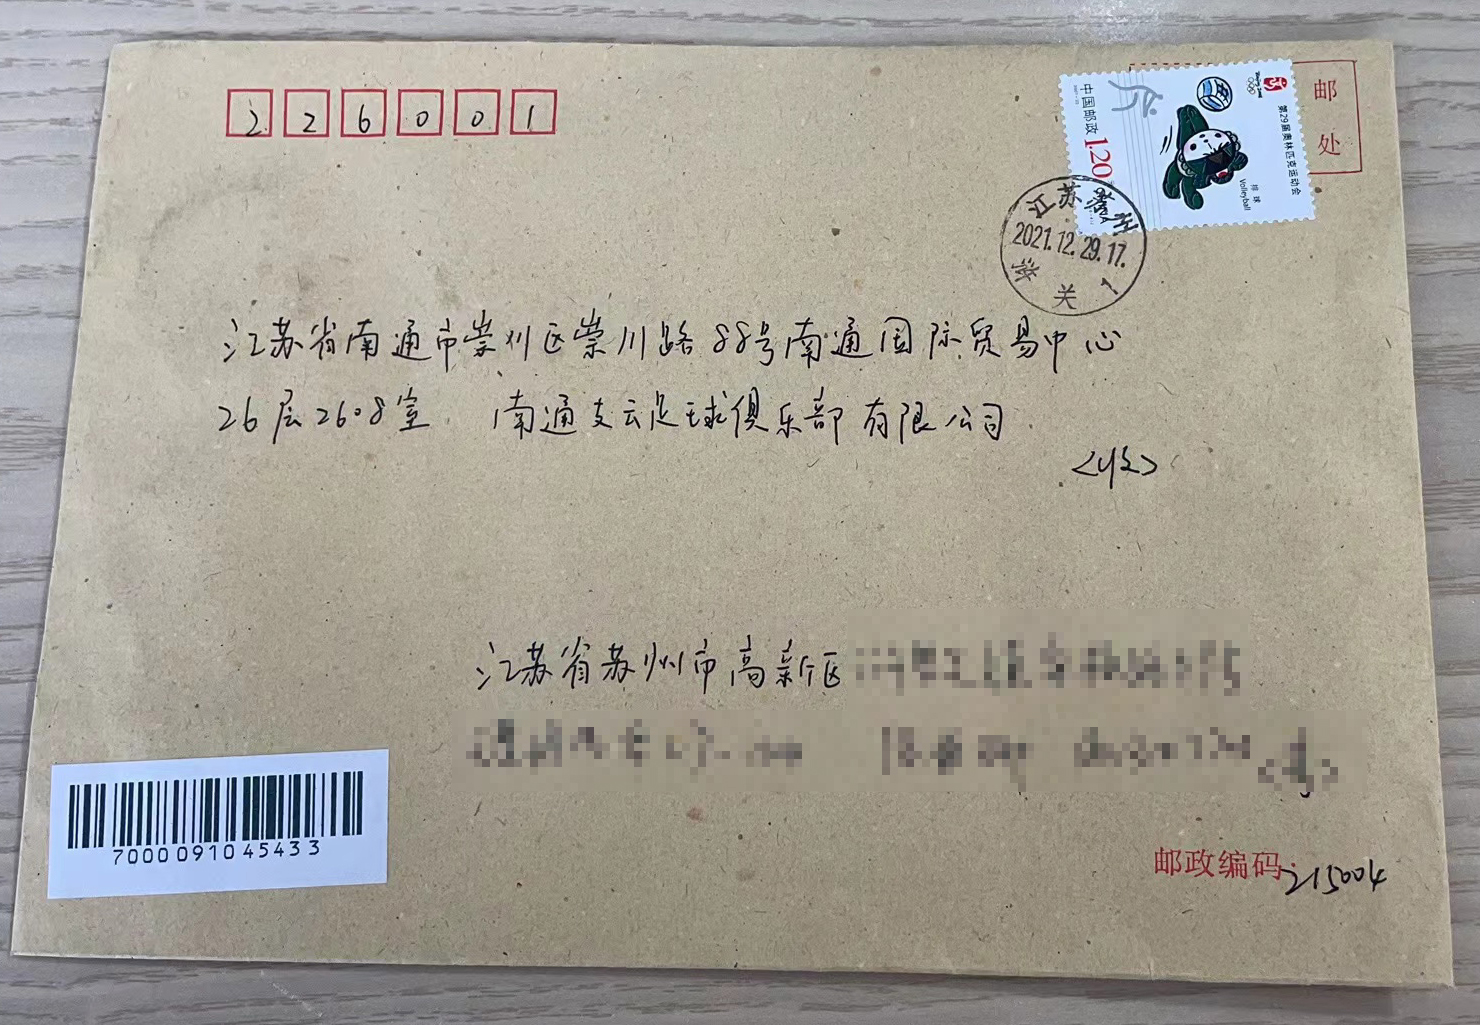 226001
邮
处
第29届奥林匹克运动会
排球
Volleyball
Beijing 2008
中国邮政
1.20
CHINA
江苏苏州
2021.12.29.17.
浒关 1
江苏省南通市崇川区崇川路88号南通国际贸易中心
26层2608室 南通支云足球俱乐部有限公司
<收>
江苏省苏州市高新区
7000091045433
邮政编码:215004